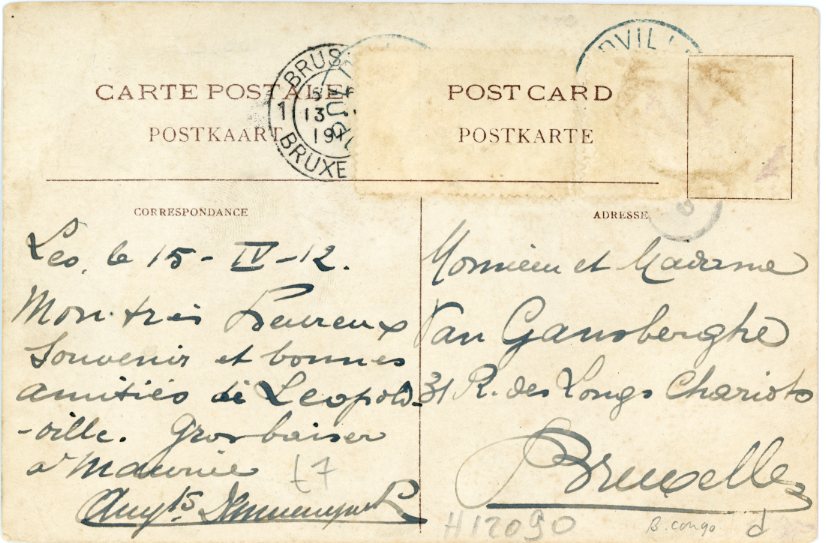 CARTE POSTALE
POSTKAART
POST CARD
POSTKARTE
BRUXE
1
13
19
DVILL
CORRESPONDANCE
ADRESSE
Leo, le 15 - IV - 12.
Mon très heureux
souvenir et bonnes
amitiés de Leopold-
-ville. Gros baiser
a Maurice
Monsieur et Madame
Van Gansberghe
31 R. des Longs Chariots
Bruxelles
t7
H12090
B. Congo
d